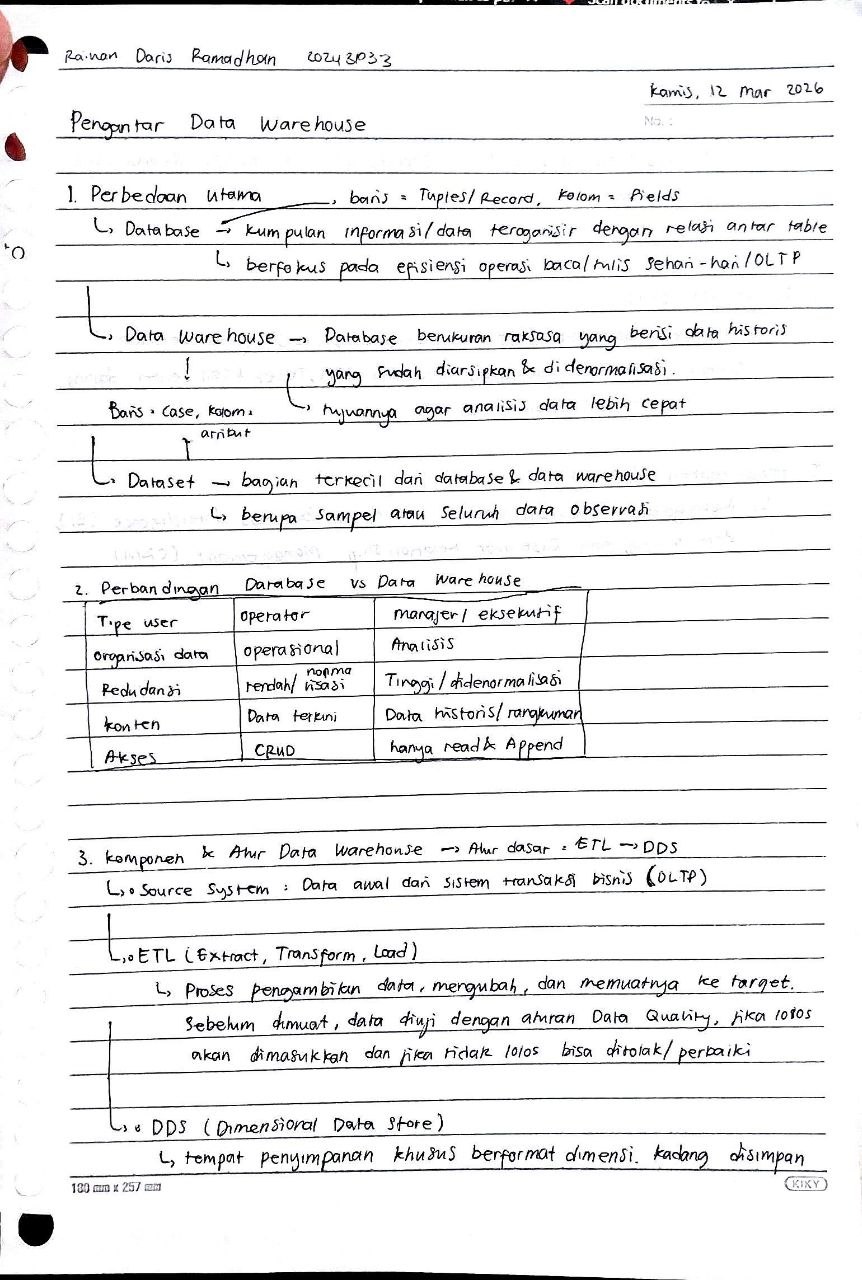 Raihan Daris Ramadhan 20243P033
Kamis, 12 Mar 2026
No. :
Pengantar Data Warehouse
1. Perbedaan utama , baris = Tuples/Record, Kolom = Fields
↳ Database → kumpulan informasi/data teroganisir dengan relasi antar table
↳ berfokus pada efisiensi operasi baca/tulis sehari-hari/OLTP
↳ Data Warehouse → Database berukuran raksasa yang berisi data historis
↓ yang sudah diarsipkan & didenormalisasi.
Baris = Case, Kolom = ↳ tujuannya agar analisis data lebih cepat
atribut
↳ Dataset → bagian terkecil dari database & data warehouse
↳ berupa sampel atau seluruh data observasi
2. Perbandingan Database vs Data Warehouse
Tipe user operator manajer/eksekutif
organisasi data operasional Analisis
Redudansi rendah/normalisasi Tinggi/didenormalisasi
konten Data terkini Data historis/rangkuman
Akses CRUD hanya read & Append
3. Komponen & Alur Data Warehouse → Alur dasar = ETL → DDS
↳ • Source System : Data awal dari sistem transaksi bisnis (OLTP)
↳ • ETL (Extract, Transform, Load)
↳ Proses pengambilan data, mengubah, dan memuatnya ke target.
Sebelum dimuat, data diuji dengan aturan Data Quality, jika lolos
akan dimasukkan dan jika tidak lolos bisa ditolak/perbaiki
↳ • DDS (Dimensional Data Store)
↳ tempat penyimpanan khusus berformat dimensi. kadang disimpan
180 mm x 257 mm
KIKY